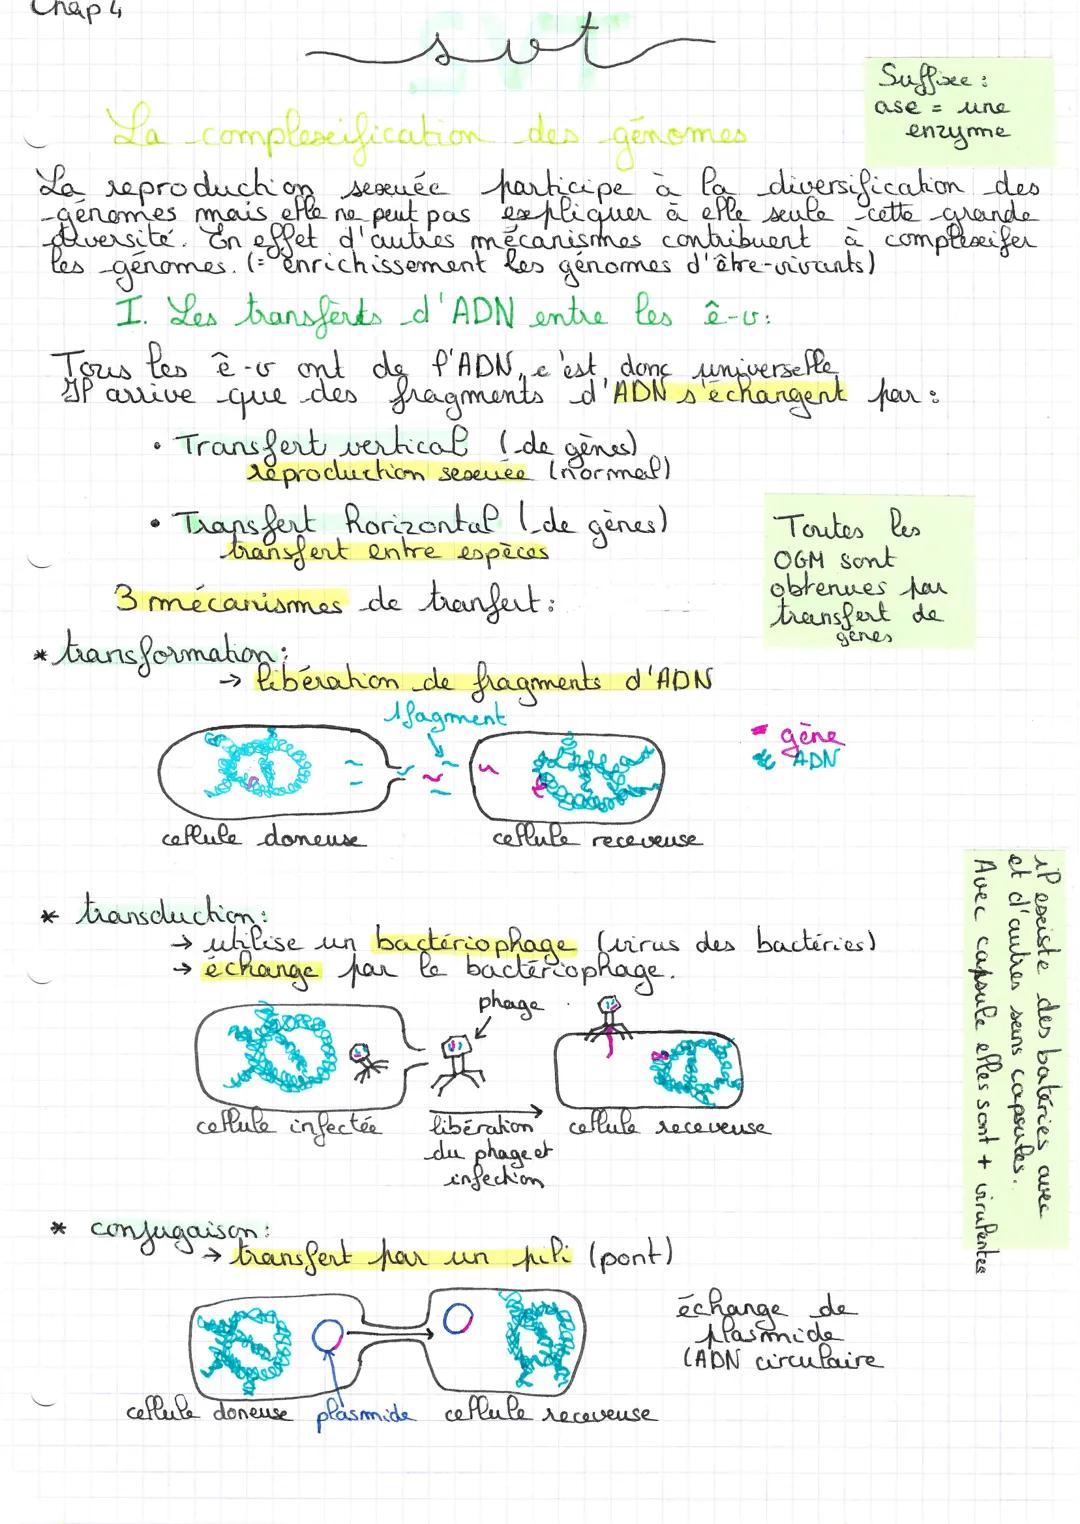 Chap 4
svt
Suffixe :
ase = une
enzyme
La complexification des génomes
La reproduction sexuée participe à la diversification des
génomes mais elle ne peut pas expliquer à elle seule cette grande
diversité. En effet d'autres mécanismes contribuent à complexifer
les génomes. (= enrichissement les génomes d'être-vivants)
I. Les transferts d'ADN entre les ê-v:
Tous les ê-v ont de l'ADN, c'est donc universelle
Il arrive que des fragments d'ADN s'échangent par :
• Transfert vertical (de gènes)
reproduction sexuée (normal)
• Transfert horizontal (de gènes)
transfert entre espèces
Toutes les
OGM sont
obtenues par
transfert de
gènes
3 mécanismes de tranfert :
* transformation :
→ libération de fragments d'ADN
1 fagment
gène
ADN
cellule doneuse
cellule receveuse
* transduction :
→ utilise un bactériophage (virus des bactéries)
→ échange par le bactériophage.
phage
cellule infectée
libération
du phage et
infection
cellule receveuse
il existe des batéries avec
et d'autres sans capsules.
Avec capsule elles sont + virulentes
* conjugaison :
→ transfert par un pili (pont)
échange de
plasmide
(ADN circulaire
cellule doneuse
plasmide
cellule receveuse